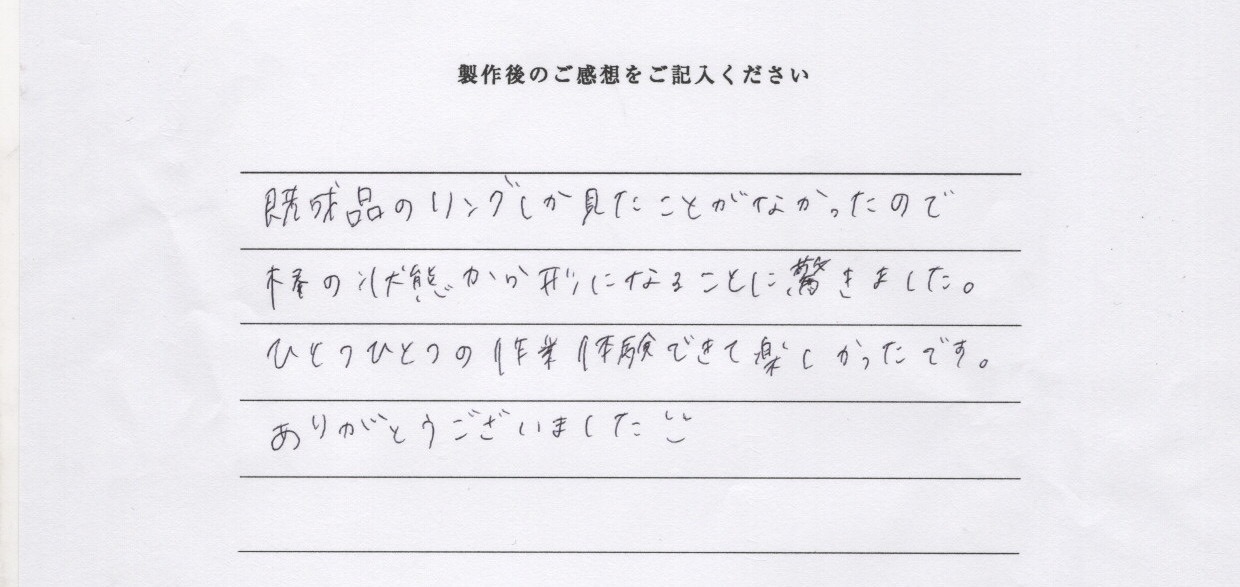 製作後のご感想をご記入ください
既成品のリングしか見たことがなかったので
棒の状態から形になることに驚きました。
ひとつひとつの作業体験できて楽しかったです。
ありがとうございました